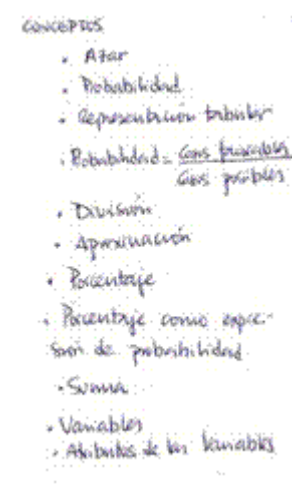 CONCEPTOS
• Azar
• Probabilidad
• Representación tabular
• Probabilidad = Casos favorables
Casos posibles
• División
• Aproximación
• Porcentaje
• Porcentaje como expre-
sión de probabilidad
• Suma
• Variables
• Atributos de las variables